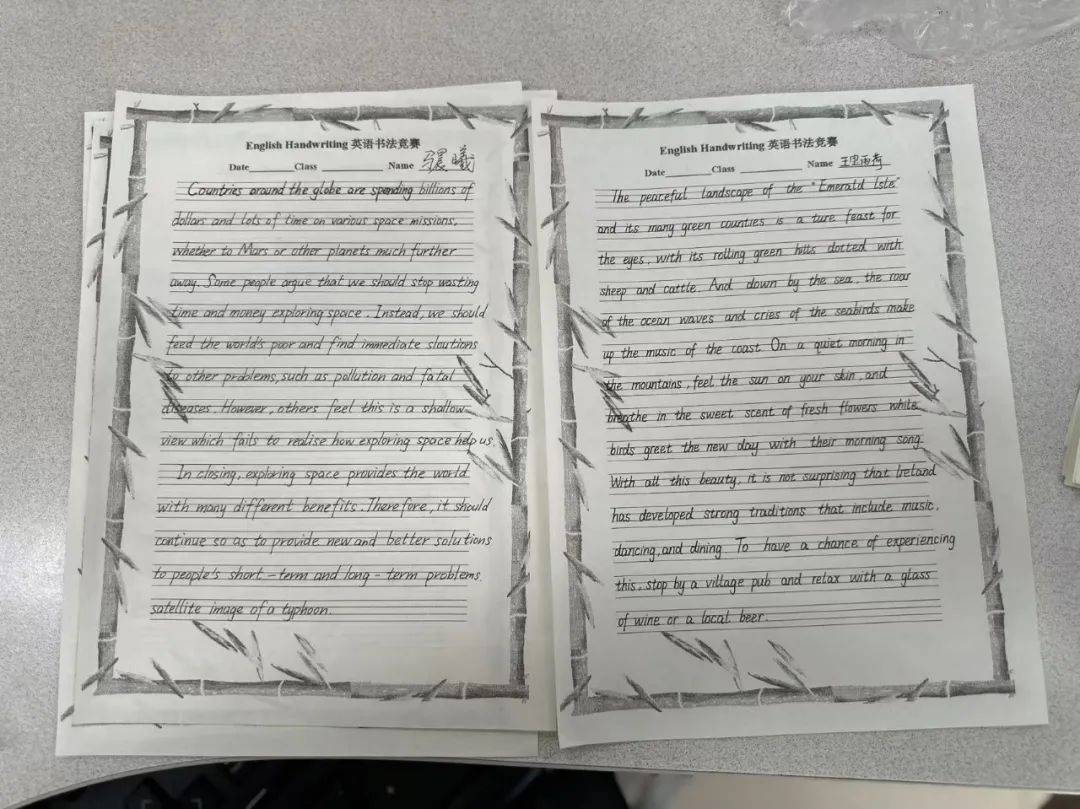 English Handwriting 英语书法竞赛
Date Class Name 骒曦
Countries around the globe are spending billions of
dollars and lots of time on various space missions,
whether to Mars or other planets much further
away. Some people argue that we should stop wasting
time and money exploring space. Instead, we should
feed the world's poor and find immediate sloutions
to other problems, such as pollution and fatal
diseases. However, others feel this is a shallow
view which fails to realise how exploring space help us.
In closing, exploring space provides the world
with many different benefits. Therefore, it should
continue so as to provide new and better solutions
to people's short-term and long-term problems.
satellite image of a typhoon.
English Handwriting 英语书法竞赛
Date Class Name
The peaceful landscape of the "Emerald Isle"
and its many green counties is a ture feast for
the eyes, with its rolling green hills dotted with
sheep and cattle. And down by the sea, the roar
of the ocean waves and cries of the seabirds make
up the music of the coast. On a quiet morning in
the mountains, feel the sun on your skin, and
breathe in the sweet scent of fresh flowers while
birds greet the new day with their morning song.
With all this beauty, it is not surprising that Ireland
has developed strong traditions that include music,
dancing, and dining. To have a chance of experiencing
this, stop by a village pub and relax with a glass
of wine or a local beer.